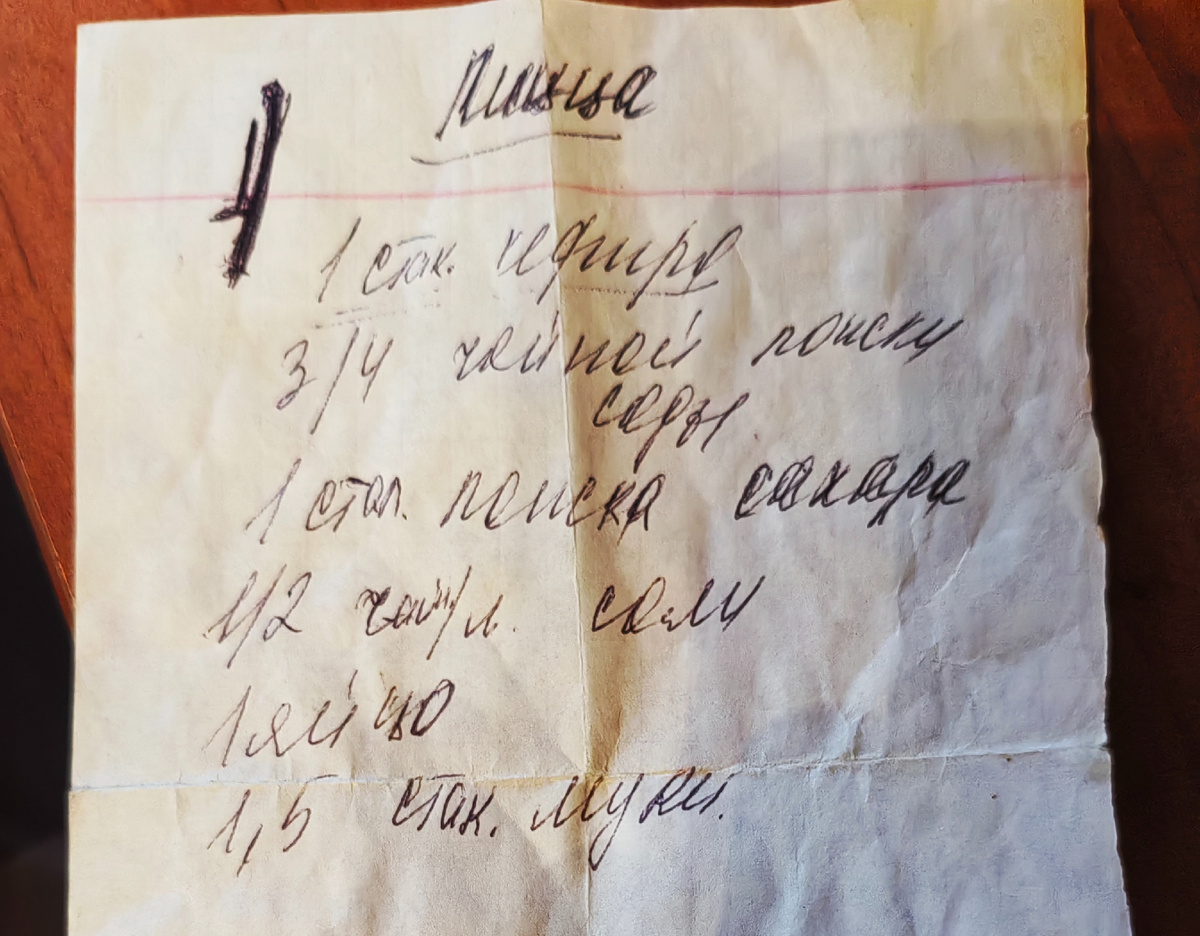 Пицца
4
1 стак. кефира
3/4 чайной ложки
соды
1 стол. ложка сахара
1/2 чай/л. соли
1 яйцо
1,5 стак. муки.